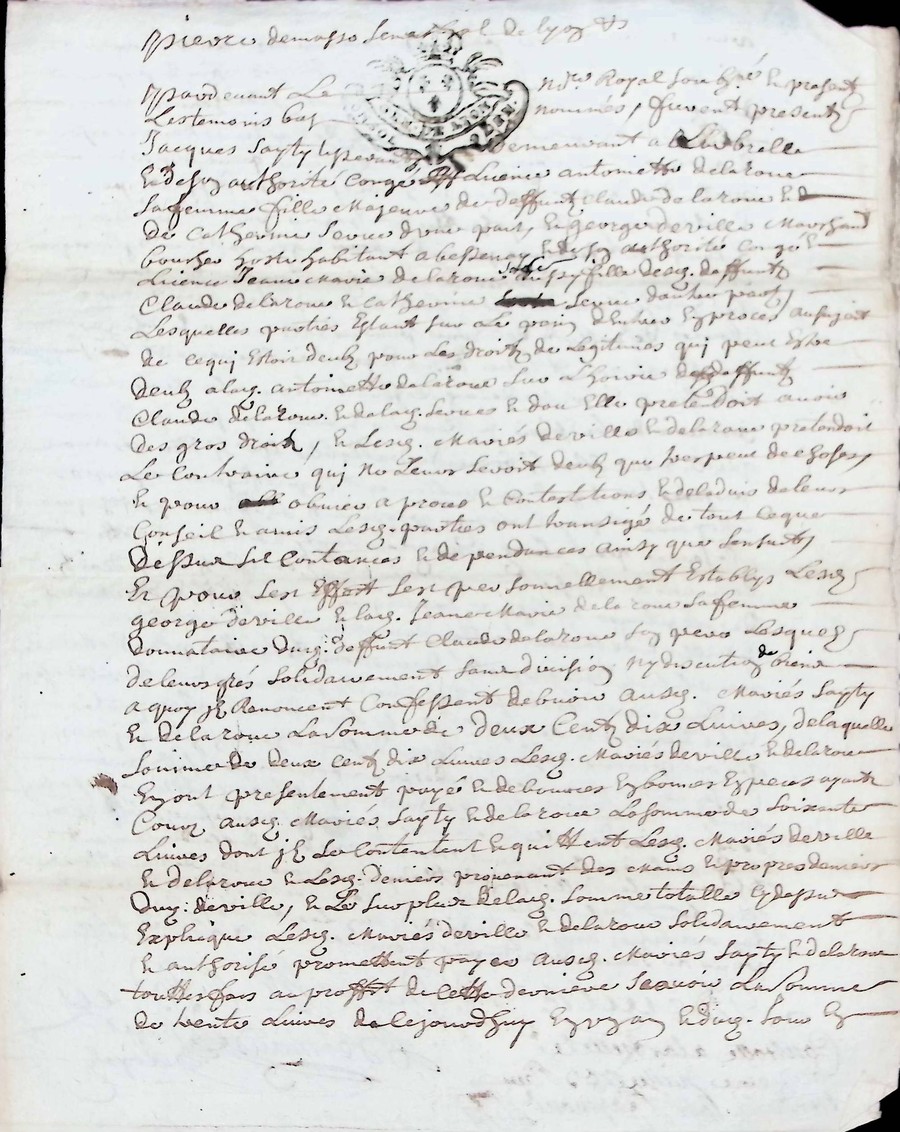 pierre demasso senechal de lyon
pardevant Le no.re Royal soubsigné & present
Lestemoins bas nommés, furent presents
Jacques sapty demeurant a Larbresle
& desoy authorité congé Lisence antoinette delaroue
safemme fille Majeure de deffunt Claude delaroue &
de Catherine sevre d'une part, & george deville Marchand
boucher hoste habitant a bessenay & desoy authorité congé &
Lisence Jeanne Marie delaroue fille desd. deffunts
Claude delaroue & Catherine sevre dautre part,
Lesquelles parties Estant sur Le point dentrer En proces ausujet
de cequi Estoit deub pour Les droits de Legitimes qui peut Estre
deub alad. antoinette delaroue sur Lhoirie deffunts
Claude delaroue & delad. sevres & dou Elle pretendoit avoir
des gros droits, & Lesd. Mariés deville & delaroue pretendoit
Le Contraire qui ne Leur seroit deub que tres peut de choses,
& pour obvier a proces & Contestations & deladuis deleurs
Conseil & amis Lesd. parties ont transigé de tout ceque
dessus Circontances & dependances ainsy que sensuit,
Et pour Cest Effait sest personnellement Establys Lesd.
george deville & lad. Jeanne Marie delaroue safemme
donnataire dud. deffunt Claude delaroue son pere Lesquels
deleurs grés solidairement sans division ny discution de biens
a quoy jls Renoncent Confessent debvoir ausd. Mariés sapty
& delaroue La somme de deux Cents dix Livres, delaquelle
somme de deux Cents dix Livres Lesd. Mariés deville & delaroue
En ont presentement payé & delivrés En bonnes Especes ayant
Cour ausd. Mariés sapty & delaroue Lasomme de soixante
Livres dont jls se Contentent & quittent Lesd. Mariés deville
& delaroue & Lesd. deniers provenant des Mains & propres deniers
dud. deville, & Le surplus delad. somme totalle Cy dessus
Expliqué Lesd. Mariés deville & delaroue solidairement
& authorisé promettent payer ausd. Mariés sapty & delaroue
touttesfois au proffit de cette derniere scavoir La somme
de trente Livres de cejourdhuy En un an & dud. jour En